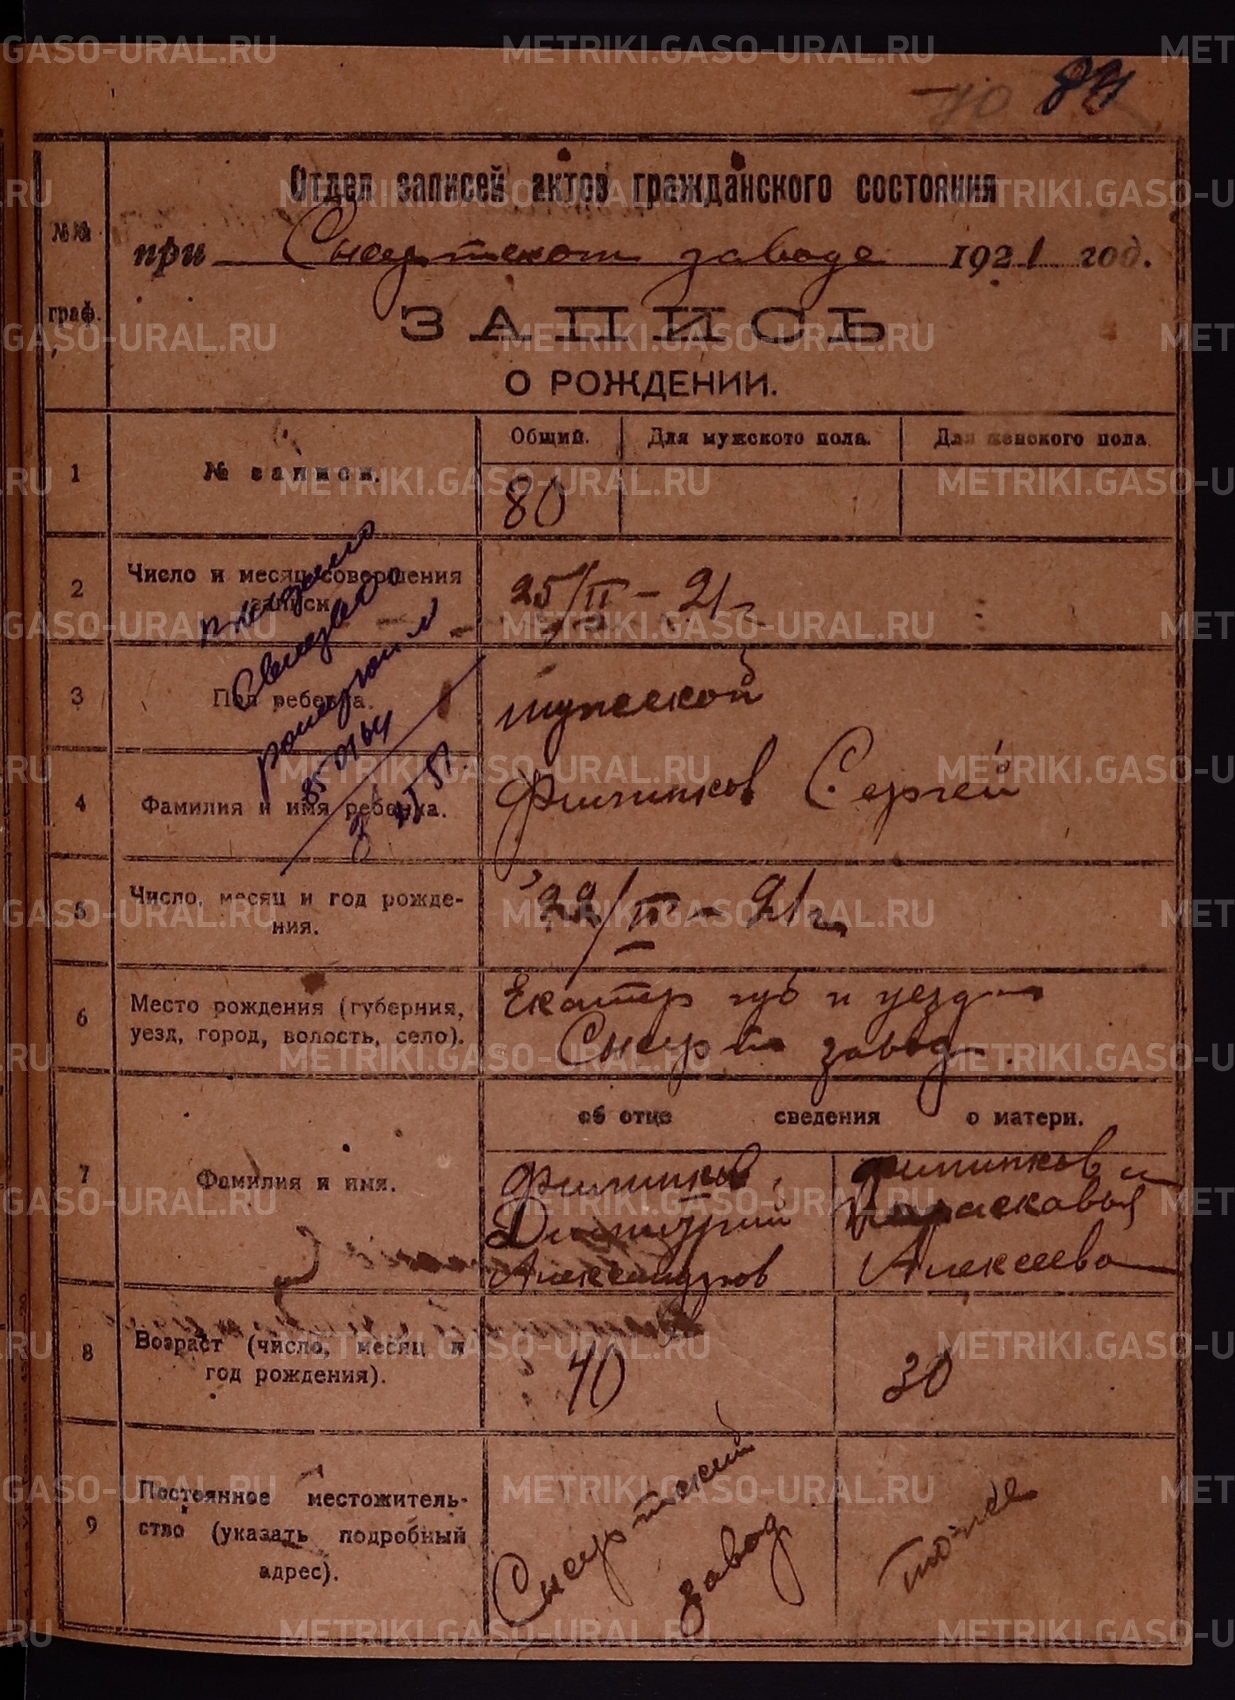 84
Отдел записей актов гражданского состояния
№№ граф.
при Сысертском заводе 1921 год.
ЗАПИСЬ
О РОЖДЕНИИ.
1 № записи.
Общий. Для мужского пола. Для женского пола
80
2 Число и месяц совершения записи
25/II – 21 г
3 Пол ребенка.
мужской
4 Фамилия и имя ребенка.
Филипков Сергей
5 Число, месяц и год рождения.
22/II – 21 г.
6 Место рождения (губерния, уезд, город, волость, село).
Екатер губ и уезд
Сысер за завод.
об отце сведения о матери.
7 Фамилия и имя.
Филипков
Димитрий
Александров
Филипкова
Парасковья
Алексеева
8 Возраст (число, месяц и год рождения).
40
30
9 Постоянное местожительство (указать подробный адрес).
Сысертский
завод
тоже
METRIKI.GASO-URAL.RU